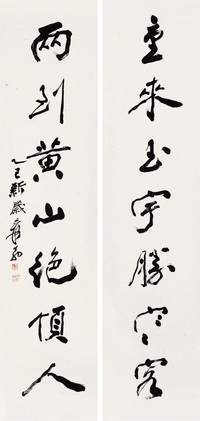 重來玉宇勝寒客
兩到黃山絕頂人
乙巳新歲爰翁